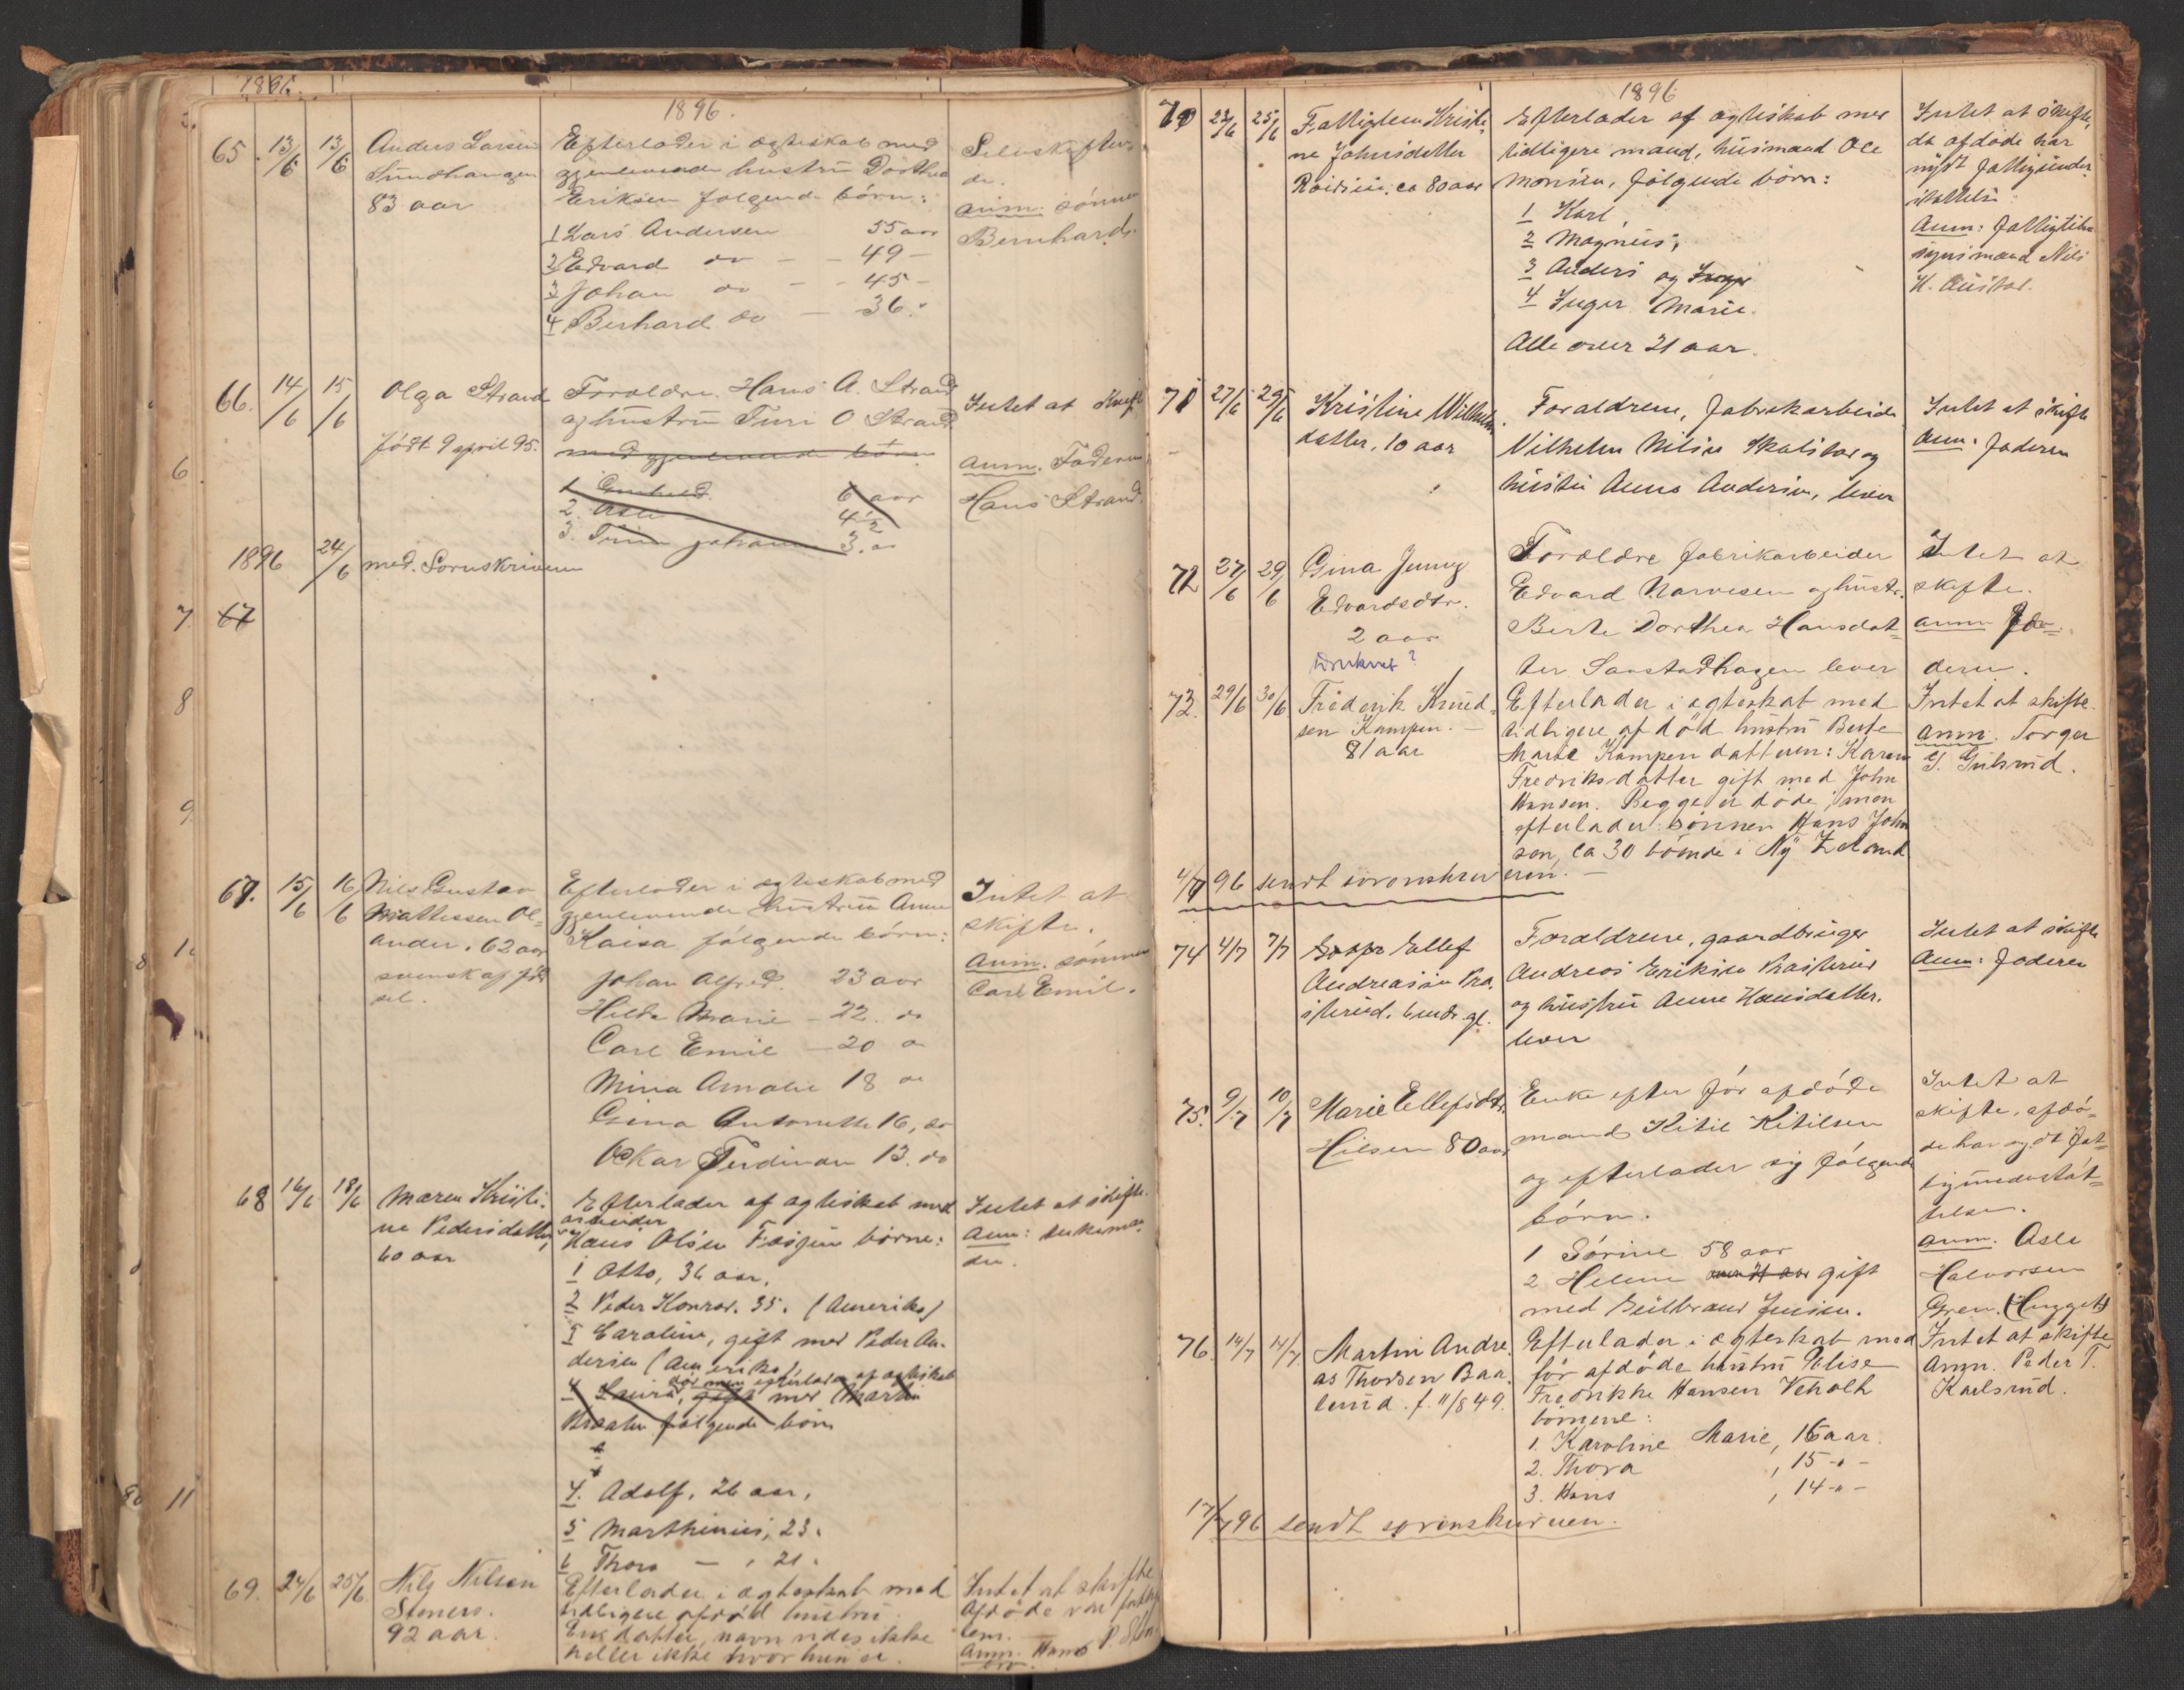 1896.
1896.
65. 13/6 13/6 Anders Larsen Efterlader i ægteskab med Selvskiften-
Sundhaugen gjenlevende hustru Dorthea de.
83 aar Eriksen følgende børn: anm. sønnen
1 Lars Andersen 55 aar Bernhard.
2 Edvard do - - 49 -
3 Johan do - - 45 -
4 Berhard do - 36 "
66. 14/6 15/6 Olga Strand Forældre Hans A. Strand Intet at skift
og hustru Turi O Strand
født 9 april 95. med gjenlevende børn anm. Faderen
1 6 aar Hans Strand.
2. 4 1/2
3. Johan 3. "
1896 24/6 med. Sorenskriveren
67
67. 15/6 16/6 Nils Gustav Efterlader i ægteskab med Intet at
Mattessen Ol- gjenlevende hustru Anne skifte.
ander. 62 aar Kaisa følgende børn: anm. sønnen
svensk af fød Johan Alfred. 23 aar Carl Emil.
sel. Hilda Marie - 22. do
Carl Emil - 20 do
Mina Amalie 18 do
Gina Antonette 16, do
Oskar Ferdinan 13. do
68 16/6 18/6 Maren Kristi- Efterlader af ægteskab med Intet at skifte.
arbeider
ne Pedersdatter, Hans Olsen børne: Anm: enkeman-
60 aar 1 Otto, 36 aar. den.
2 Peder Konrad. 35. (Amerika)
3 Caroline, gift med Peder An-
dersen (Amerika),
død men efterlader af ægteskab
4 Laura, gift med Martin
Braaten følgende børn
4. Adolf, 26 aar,
5 Marthinius, 23.
6 Thora - , 21.
69. 24/6 25/6 Nils Nilsen Efterlader i ægteskab med Intet at skifte
Steners. tidligere afdød hustru Afdøde var fattig
92 aar. En datter, navn vides ikke lem.
heller ikke hvor hun er. Anm. Hans P.
1896
70 23/6 25/6 Fattiglem Kristi- Efterlader af ægteskab med Intet at skifte,
ne Johnsdatter tidligere mand, husmand Ole da afdøde har
ca 80 aar Monsen, følgende børn: nydt fattigunder-
1 Karl, støttelse.
2 Magnus, Anm: fattigtil-
3 Anders og Inger synsmand Nils
4 Inger Marie. H.
Alle over 21 aar.
71 27/6 29/6 Kristine Wilhelms- Forældrene, fabrikarbeider Intet at skifte
datter, 10 aar Vilhelm Nilsen og Anm: faderen
hustru Anna Andersen, lever
72 27/6 29/6 Gina Jenny Forældre fabrikarbeider Intet at
Edvardsdtr. Edvard Narvesen og hustr. skifte.
2 aar Berte Dorthea Hansdat- anm Fa-
druknet? ter Saastadhagen lever deren.
73. 29/6 30/6 Fredrik Knud- Efterlader i ægteskab med Intet at skifte.
sen Kampen. - tidligere afdød hustru Berte Anm. Torger
81 aar Marie Kampen datteren: Karen G. Gulsrud.
Fredriksdatter gift med John
Hansen. Begge er døde, men
efterlader sønnen Hans John
sen, ca 30 boende i Ny Zeland
4/7 96 sendt sorenskriveren. -
74 4/7 7/7 Ellef Forældrene, gaardbruger Intet at skifte
Andreassen Andreas Eriksen Anm: faderen
6 mdr. gl. og hustru Anne Hansdatter.
lever
75. 9/7 10/7 Marie Ellefsdtr. Enke efter før afdøde Intet at
Hilsen 80 aar mand Kitil Kitilsen skifte, afdø-
og efterlader sig følgende de har nydt fat-
børn. tigunderstøt-
1 Sørine 58 aar telse.
2 Helene gift anm. Asle
med Gulbrand Jensen. Halvorsen
Gren. (Hugget)
76. 14/7 14/7 Martin Andre- Efterlader i ægteskab med Intet at skifte
as Thorsen Baa- før afdøde hustru Elise Anm. Peder T.
lerud. f. 11/8 49. Fredrikke Hansen Veholt Karlsrud.
børnene:
1. Karoline Marie, 16 aar.
2. Thora , 15 -"-
3. Hans , 14 -"-
17/7 96 sendt sorenskriveren.